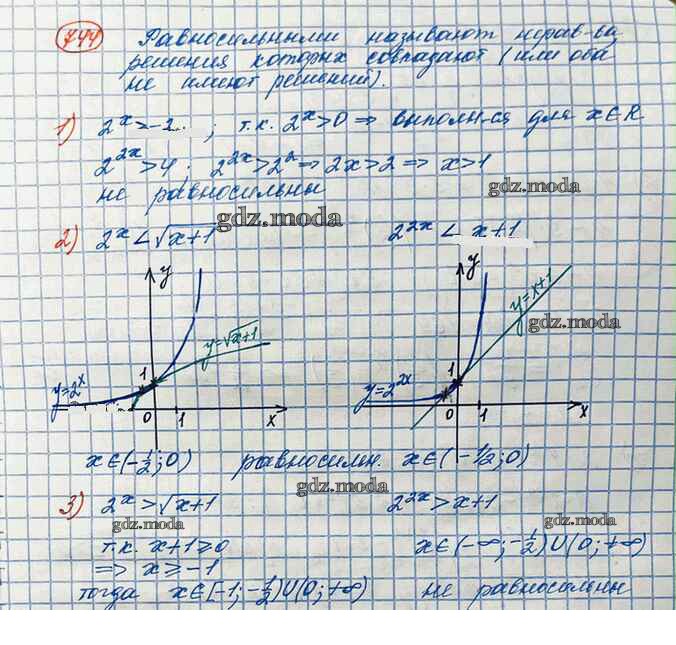 744 Равносильными называют нерав-ва
решения которых совпадают (или оба
не имеют решений).
1) 2ˣ>-2 ; т.к. 2ˣ>0 ⇒ выполн-ся для x∈R
2²ˣ>4 ; 2²ˣ>2² ⇒ 2x>2 ⇒ x>1
не равносильны
gdz.moda
gdz.moda
2) 2ˣ<√x+1 2²ˣ < x+1
y y
y=√x+1 y=x+1
gdz.moda
1 1
y=2ˣ y=2²ˣ
0 1 x 0 1 x
x∈(-1/2;0) равносильн. x∈(-1/2;0)
gdz.moda
3) 2ˣ>√x+1 2²ˣ>x+1
gdz.moda gdz.moda
т.к. x+1≥0 x∈(-∞;-1/2)∪(0;+∞)
⇒ x≥-1
тогда x∈[-1;-1/2)∪(0;+∞) не равносильны